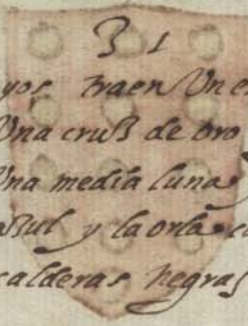 31
yos traen Un es
Una cruß de oro
Una media luna
aßul y la orla co
calderas negras